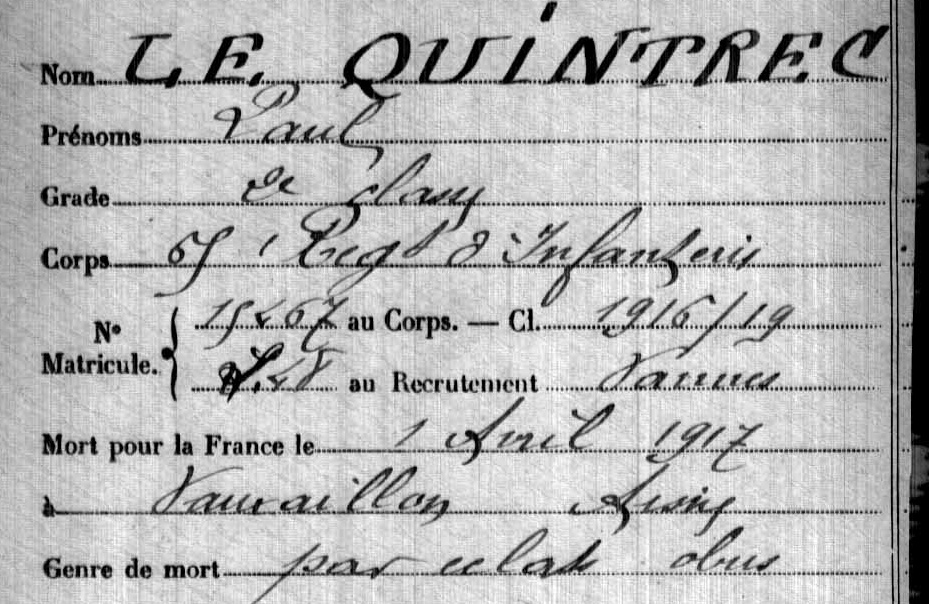 Nom LE QUINTREC
Prénoms Paul
Grade 2e class
Corps 65e Regt d'Infanterie
N° Matricule. 15267 au Corps. — Cl. 1916/19
au Recrutement Vannes
Mort pour la France le 1 Avril 1917
à Vauxaillon Aisne
Genre de mort par eclats obus